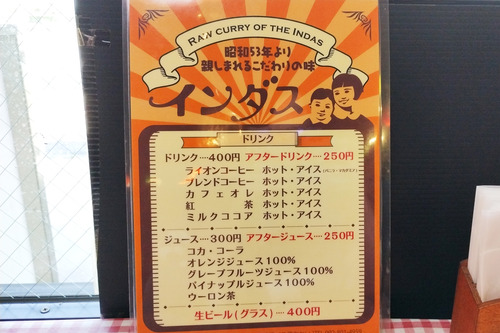 RAW CURRY OF THE INDAS
昭和53年より
親しまれるこだわりの味
インダス
ドリンク
ドリンク‥‥400円 アフタードリンク‥‥250円
ライオンコーヒー ホット・アイス
ブレンドコーヒー ホット・アイス
カフェオレ ホット・アイス
紅茶 ホット・アイス
ミルクココア ホット・アイス
ジュース‥‥300円 アフタージュース‥‥250円
コカ・コーラ
オレンジジュース100%
グレープフルーツジュース100%
パイナップルジュース100%
ウーロン茶
生ビール(グラス)‥‥400円